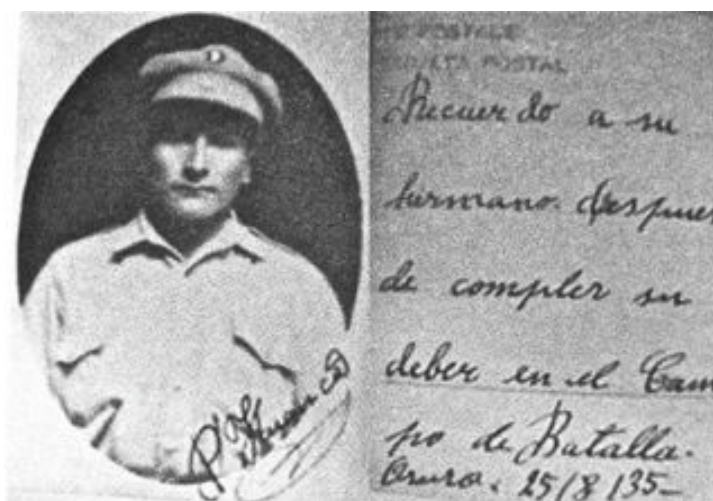 POSTALE
POSTAL
Recuerdo a su
hermano. despues
de compler su
deber en el Cam
po de Batalla.
Oruro. 25/8/35-